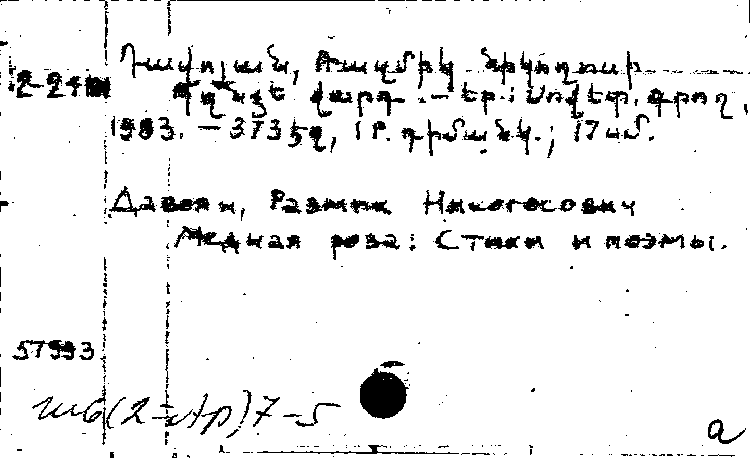 Դավոյան, Ռազմիկ Նիկողոսի
Պղնձե վարդ. – Եր.: Սովետ. գրող,
1983. – 373 էջ, 1 թ. դիմանկ.; 17 սմ.
Давоян, Размик Никогосович
Медная роза: Стихи и поэмы.
57993
ш6(2=Ар)7-5
а